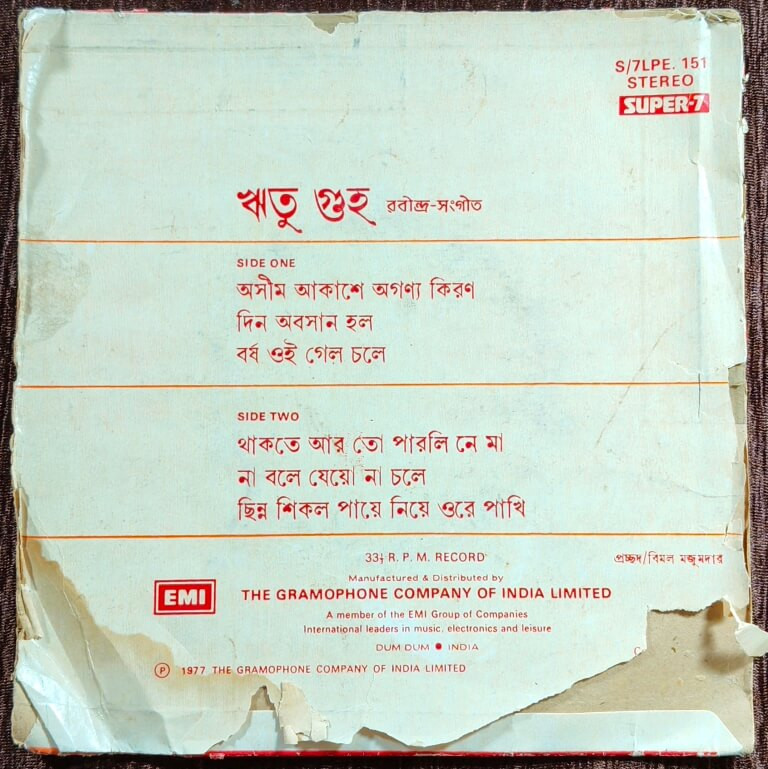 S/7LPE. 151
STEREO
SUPER-7
ঋতু গুহ রবীন্দ্র-সংগীত
SIDE ONE
অসীম আকাশে অগণ্য কিরণ
দিন অবসান হল
বর্ষ ওই গেল চলে
SIDE TWO
থাকতে আর তো পারলি নে মা
না বলে যেয়ো না চলে
ছিন্ন শিকল পায়ে নিয়ে ওরে পাখি
33⅓ R. P. M. RECORD
প্রচ্ছদ/বিমল মজুমদার
Manufactured & Distributed by
EMI THE GRAMOPHONE COMPANY OF INDIA LIMITED
A member of the EMI Group of Companies
International leaders in music, electronics and leisure
DUM DUM ● INDIA
C
℗ 1977 THE GRAMOPHONE COMPANY OF INDIA LIMITED